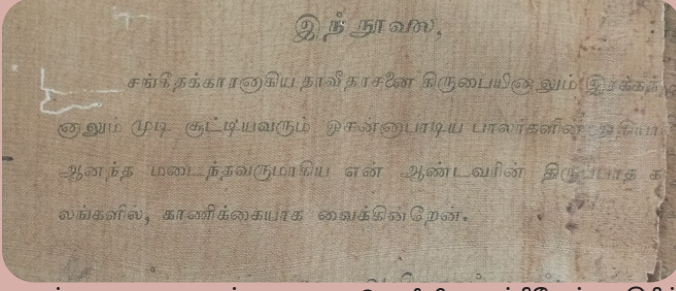 இந்நூலை,
சங்கீதக்காரனாகிய தாவீதரசனை கிருபையினாலும் இரக்கத்
னாலும் முடி சூட்டியவரும் ஓசன்னாபாடிய பாலர்களின்
ஆனந்த மடைந்தவருமாகிய என் ஆண்டவரின் திருப்பாத க
லங்களில், காணிக்கையாக வைக்கின்றேன்.